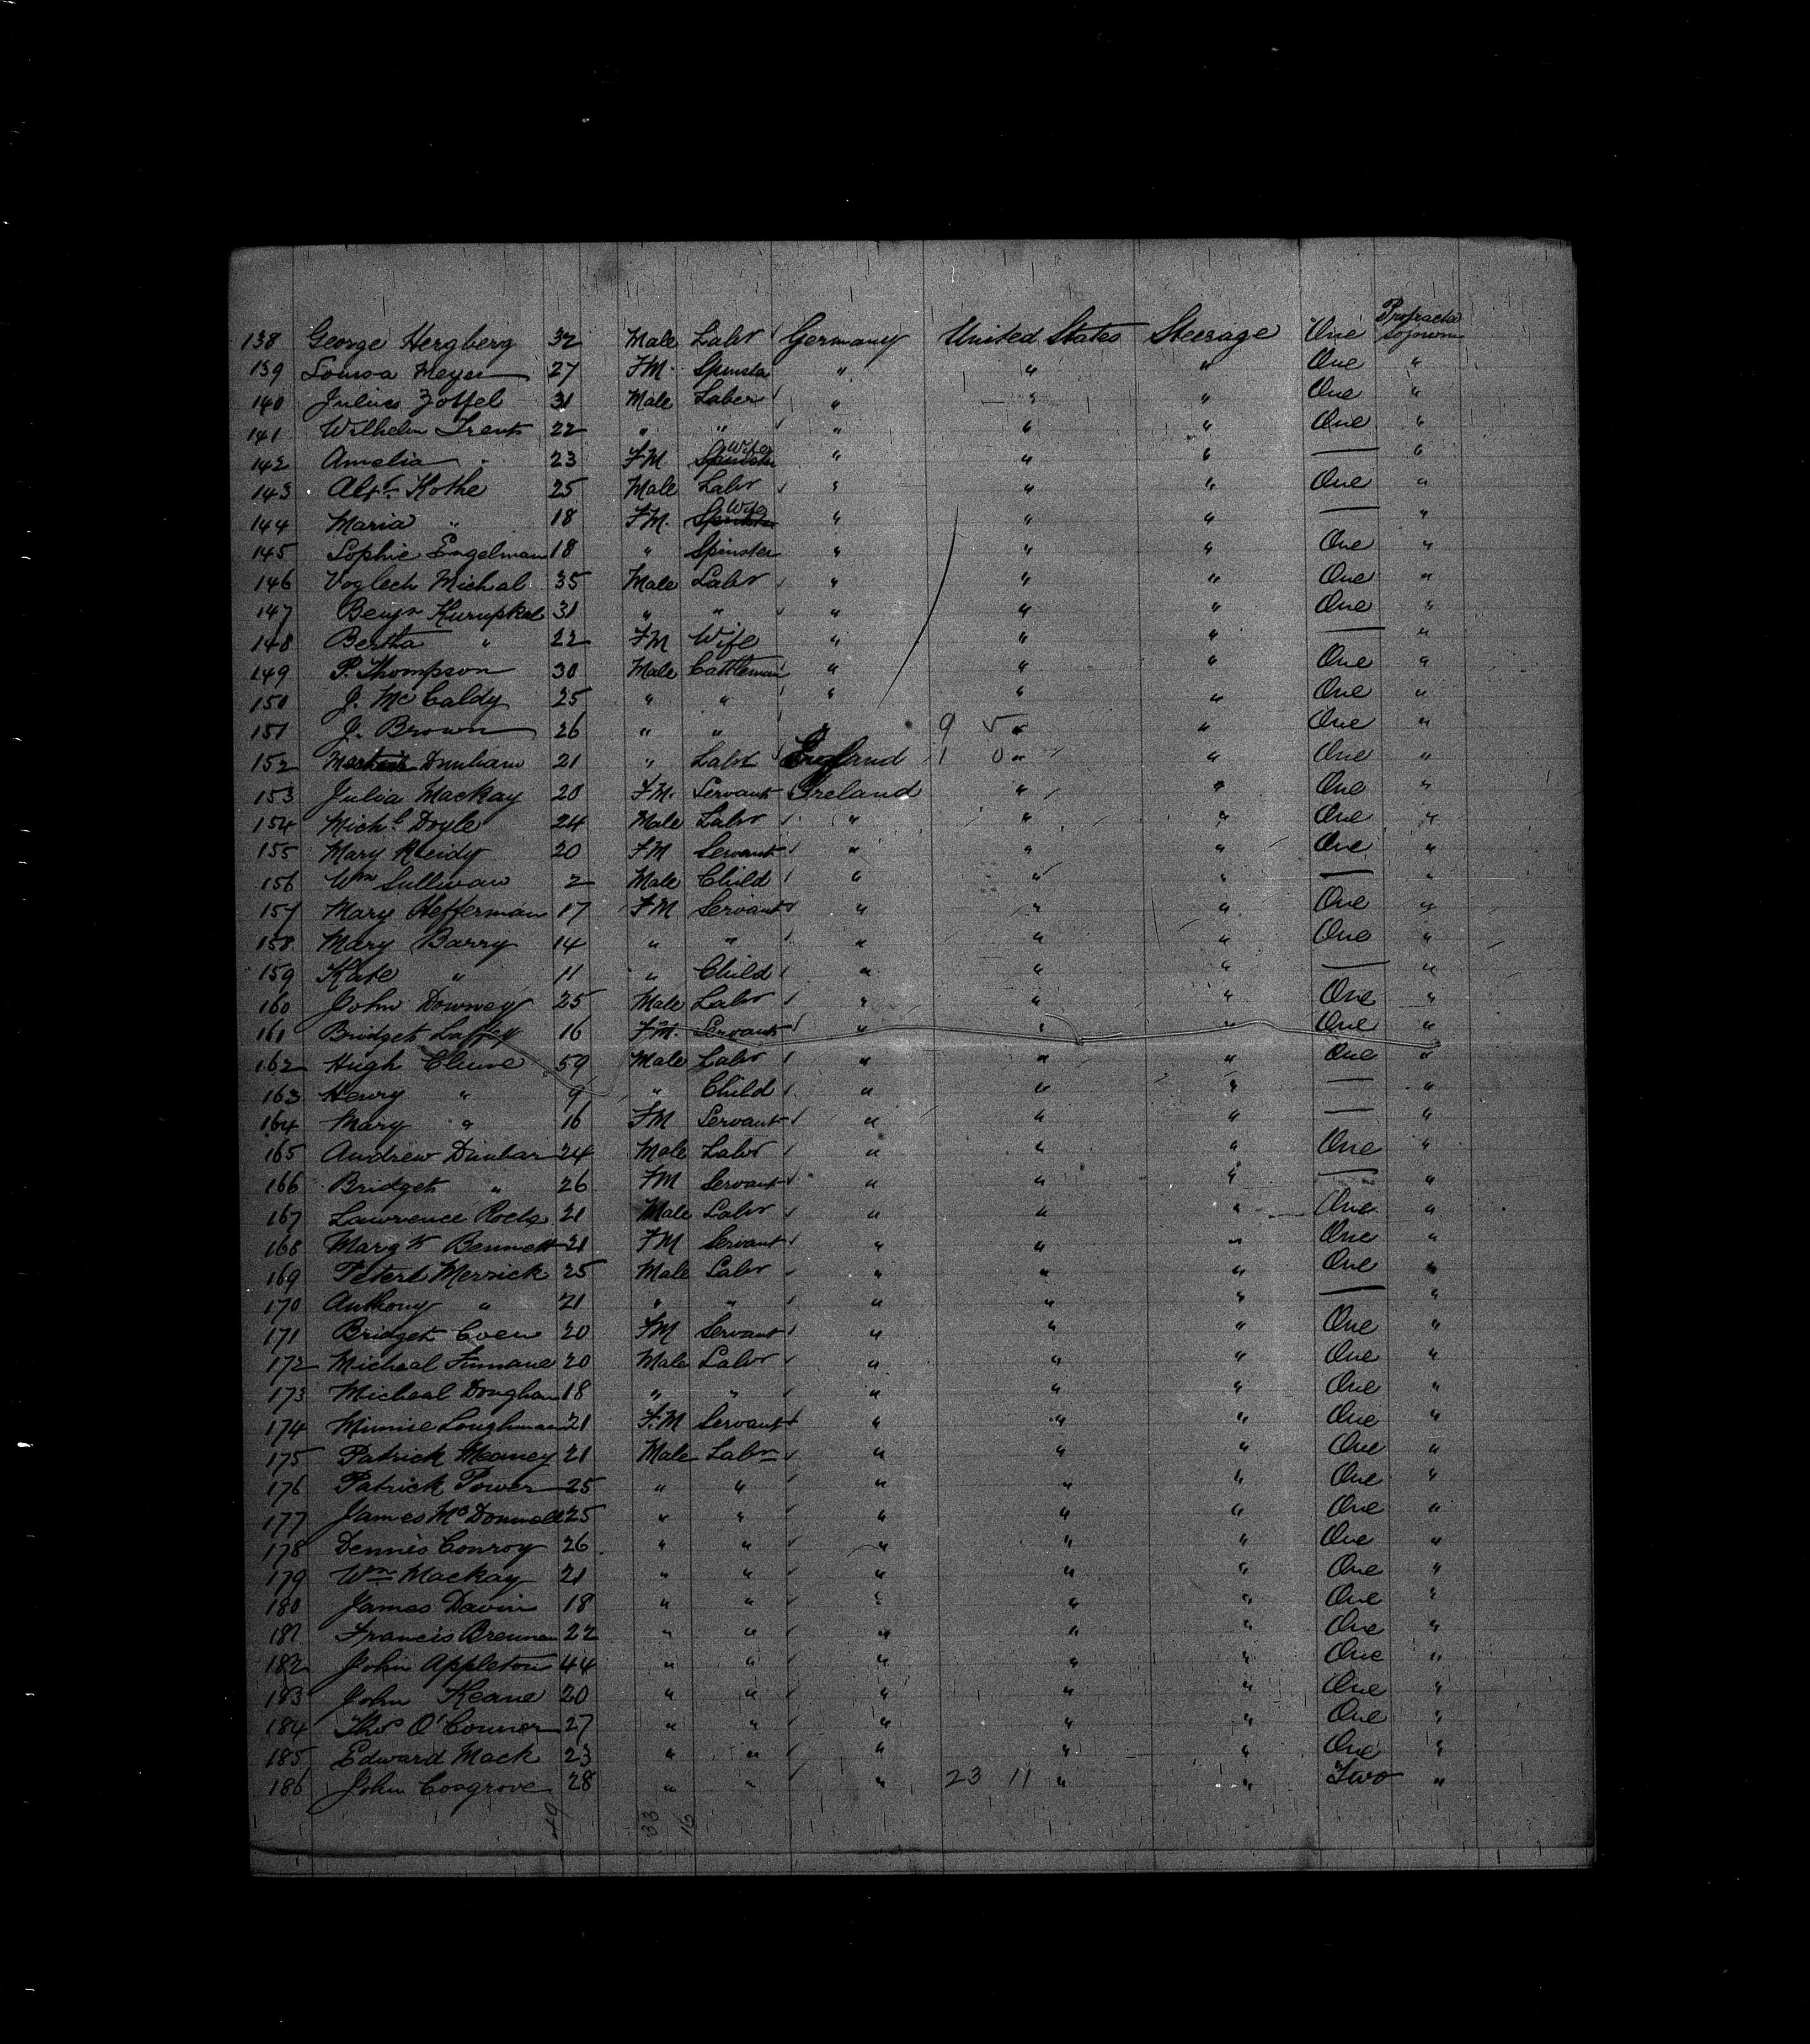 138 George Hergberg 32 Male Labr Germany United States Steerage One Protracted sojourn
139 Louisa Meyer 27 FM. Spinster " " " One "
140 Julius Zoffel 31 Male Laber " " " One "
141 Wilhelm Trent 22 " " " " " One "
142 Amelia " 23 FM Wife " " " — "
143 Alf. Kothe 25 Male Labr " " " One "
144 Maria " 18 FM. Wife " " " — "
145 Sophie Engelman 18 " Spinster " " " One "
146 Voglech Micheal 35 Male Labr " " " One "
147 Benjn Kurupkel 31 " " " " " One "
148 Bertha " 22 FM Wife " " " — "
149 P. Thompson 30 Male Cattleman " " " One "
150 J. McCaldy 25 " " " " " One "
151 J. Brown 26 " " " 9 5 " " One "
152 Dunham 21 " Labr England 1 0 " " One "
153 Julia Mackay 20 FM. Servant Ireland " " One "
154 Michl Doyle 24 Male Labr " " " One "
155 Mary Reidy 20 FM Servant " " " One "
156 Wm Sullivan 2 Male Child " " " — "
157 Mary Hefferman 17 FM Servant " " " One "
158 Mary Barry 14 " " " " " One "
159 Kate " 11 " Child " " " — "
160 John Downey 25 Male Labr " " " One "
161 Bridget Laffey 16 FM. Servant " " " One "
162 Hugh Clune 59 Male Labr " " " One "
163 Henry " 9 " Child " " " — "
164 Mary " 16 FM Servant " " " — "
165 Andrew Dunbar 24 Male Labr " " " One "
166 Bridget " 26 FM Servant " " " — "
167 Lawrence Roche 21 Male Labr " " " One "
168 Margt Bennett 21 FM Servant " " " One "
169 Peter Merrick 25 Male Labr " " " One "
170 Anthony " 21 " " " " " — "
171 Bridget Coen 20 FM Servant " " " One "
172 Micheal Finnane 20 Male Labr " " " One "
173 Micheal Doughan 18 " " " " " One "
174 Minnie Loughman 21 F.M Servant " " " One "
175 Patrick Meaney 21 Male Labr " " " One "
176 Patrick Power 25 " " " " " One "
177 James McDonnell 25 " " " " " One "
178 Dennis Conroy 26 " " " " " One "
179 Wm Mackay 21 " " " " " One "
180 James Davin 18 " " " " " One "
181 Francis Brennan 22 " " " " " One "
182 John Appleton 44 " " " " " One "
183 John Keane 20 " " " " " One "
184 Thos O'Connor 27 " " " " " One "
185 Edward Mack 23 " " " " " One "
186 John Cosgrove 28 " " " 23 11 " " Two "
49 33 16